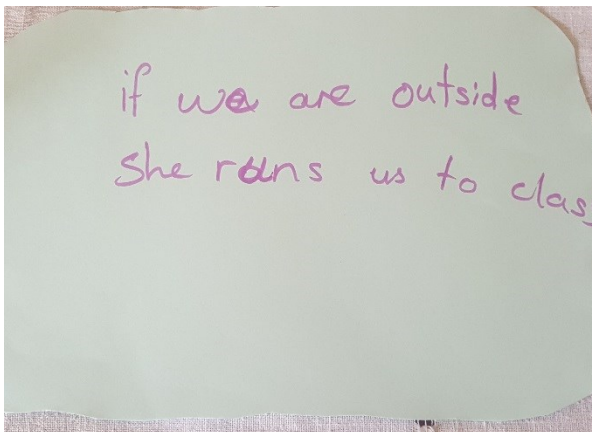 if we are outside
She runs us to clas